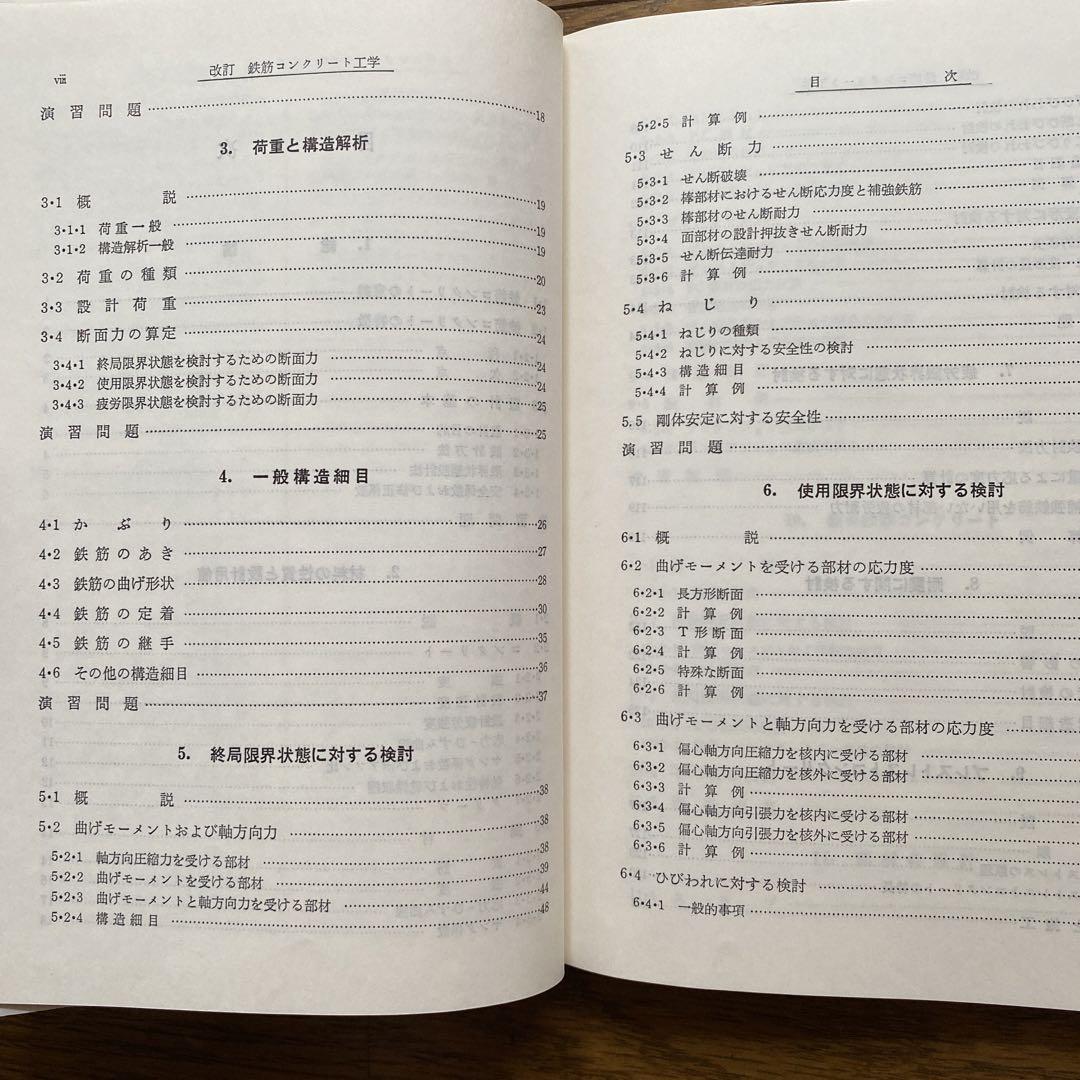 viii
改訂 鉄筋コンクリート工学
演習問題……18
3. 荷重と構造解析
3・1 概説……19
3・1・1 荷重一般……19
3・1・2 構造解析一般……19
3・2 荷重の種類……20
3・3 設計荷重……23
3・4 断面力の算定……24
3・4・1 終局限界状態を検討するための断面力……24
3・4・2 使用限界状態を検討するための断面力……24
3・4・3 疲労限界状態を検討するための断面力……25
演習問題……25
4. 一般構造細目
4・1 かぶり……26
4・2 鉄筋のあき……27
4・3 鉄筋の曲げ形状……28
4・4 鉄筋の定着……30
4・5 鉄筋の継手……35
4・6 その他の構造細目……36
演習問題……37
5. 終局限界状態に対する検討
5・1 概説……38
5・2 曲げモーメントおよび軸方向力……38
5・2・1 軸方向圧縮力を受ける部材……38
5・2・2 曲げモーメントを受ける部材……39
5・2・3 曲げモーメントと軸方向力を受ける部材……44
5・2・4 構造細目……48
目次
5・2・5 計算例……
5・3 せん断力……
5・3・1 せん断破壊……
5・3・2 棒部材におけるせん断応力度と補強鉄筋……
5・3・3 棒部材のせん断耐力……
5・3・4 面部材の設計押抜きせん断耐力……
5・3・5 せん断伝達耐力……
5・3・6 計算例……
5・4 ねじり……
5・4・1 ねじりの種類……
5・4・2 ねじりに対する安全性の検討……
5・4・3 構造細目……
5・4・4 計算例……
5.5 剛体安定に対する安全性……
演習問題……
6. 使用限界状態に対する検討
6・1 概説……
6・2 曲げモーメントを受ける部材の応力度……
6・2・1 長方形断面……
6・2・2 計算例……
6・2・3 T形断面……
6・2・4 計算例……
6・2・5 特殊な断面……
6・2・6 計算例……
6・3 曲げモーメントと軸方向力を受ける部材の応力度……
6・3・1 偏心軸方向圧縮力を核内に受ける部材……
6・3・2 偏心軸方向圧縮力を核外に受ける部材……
6・3・3 計算例……
6・3・4 偏心軸方向引張力を核内に受ける部材……
6・3・5 偏心軸方向引張力を核外に受ける部材……
6・3・6 計算例……
6・4 ひびわれに対する検討……
6・4・1 一般的事項……